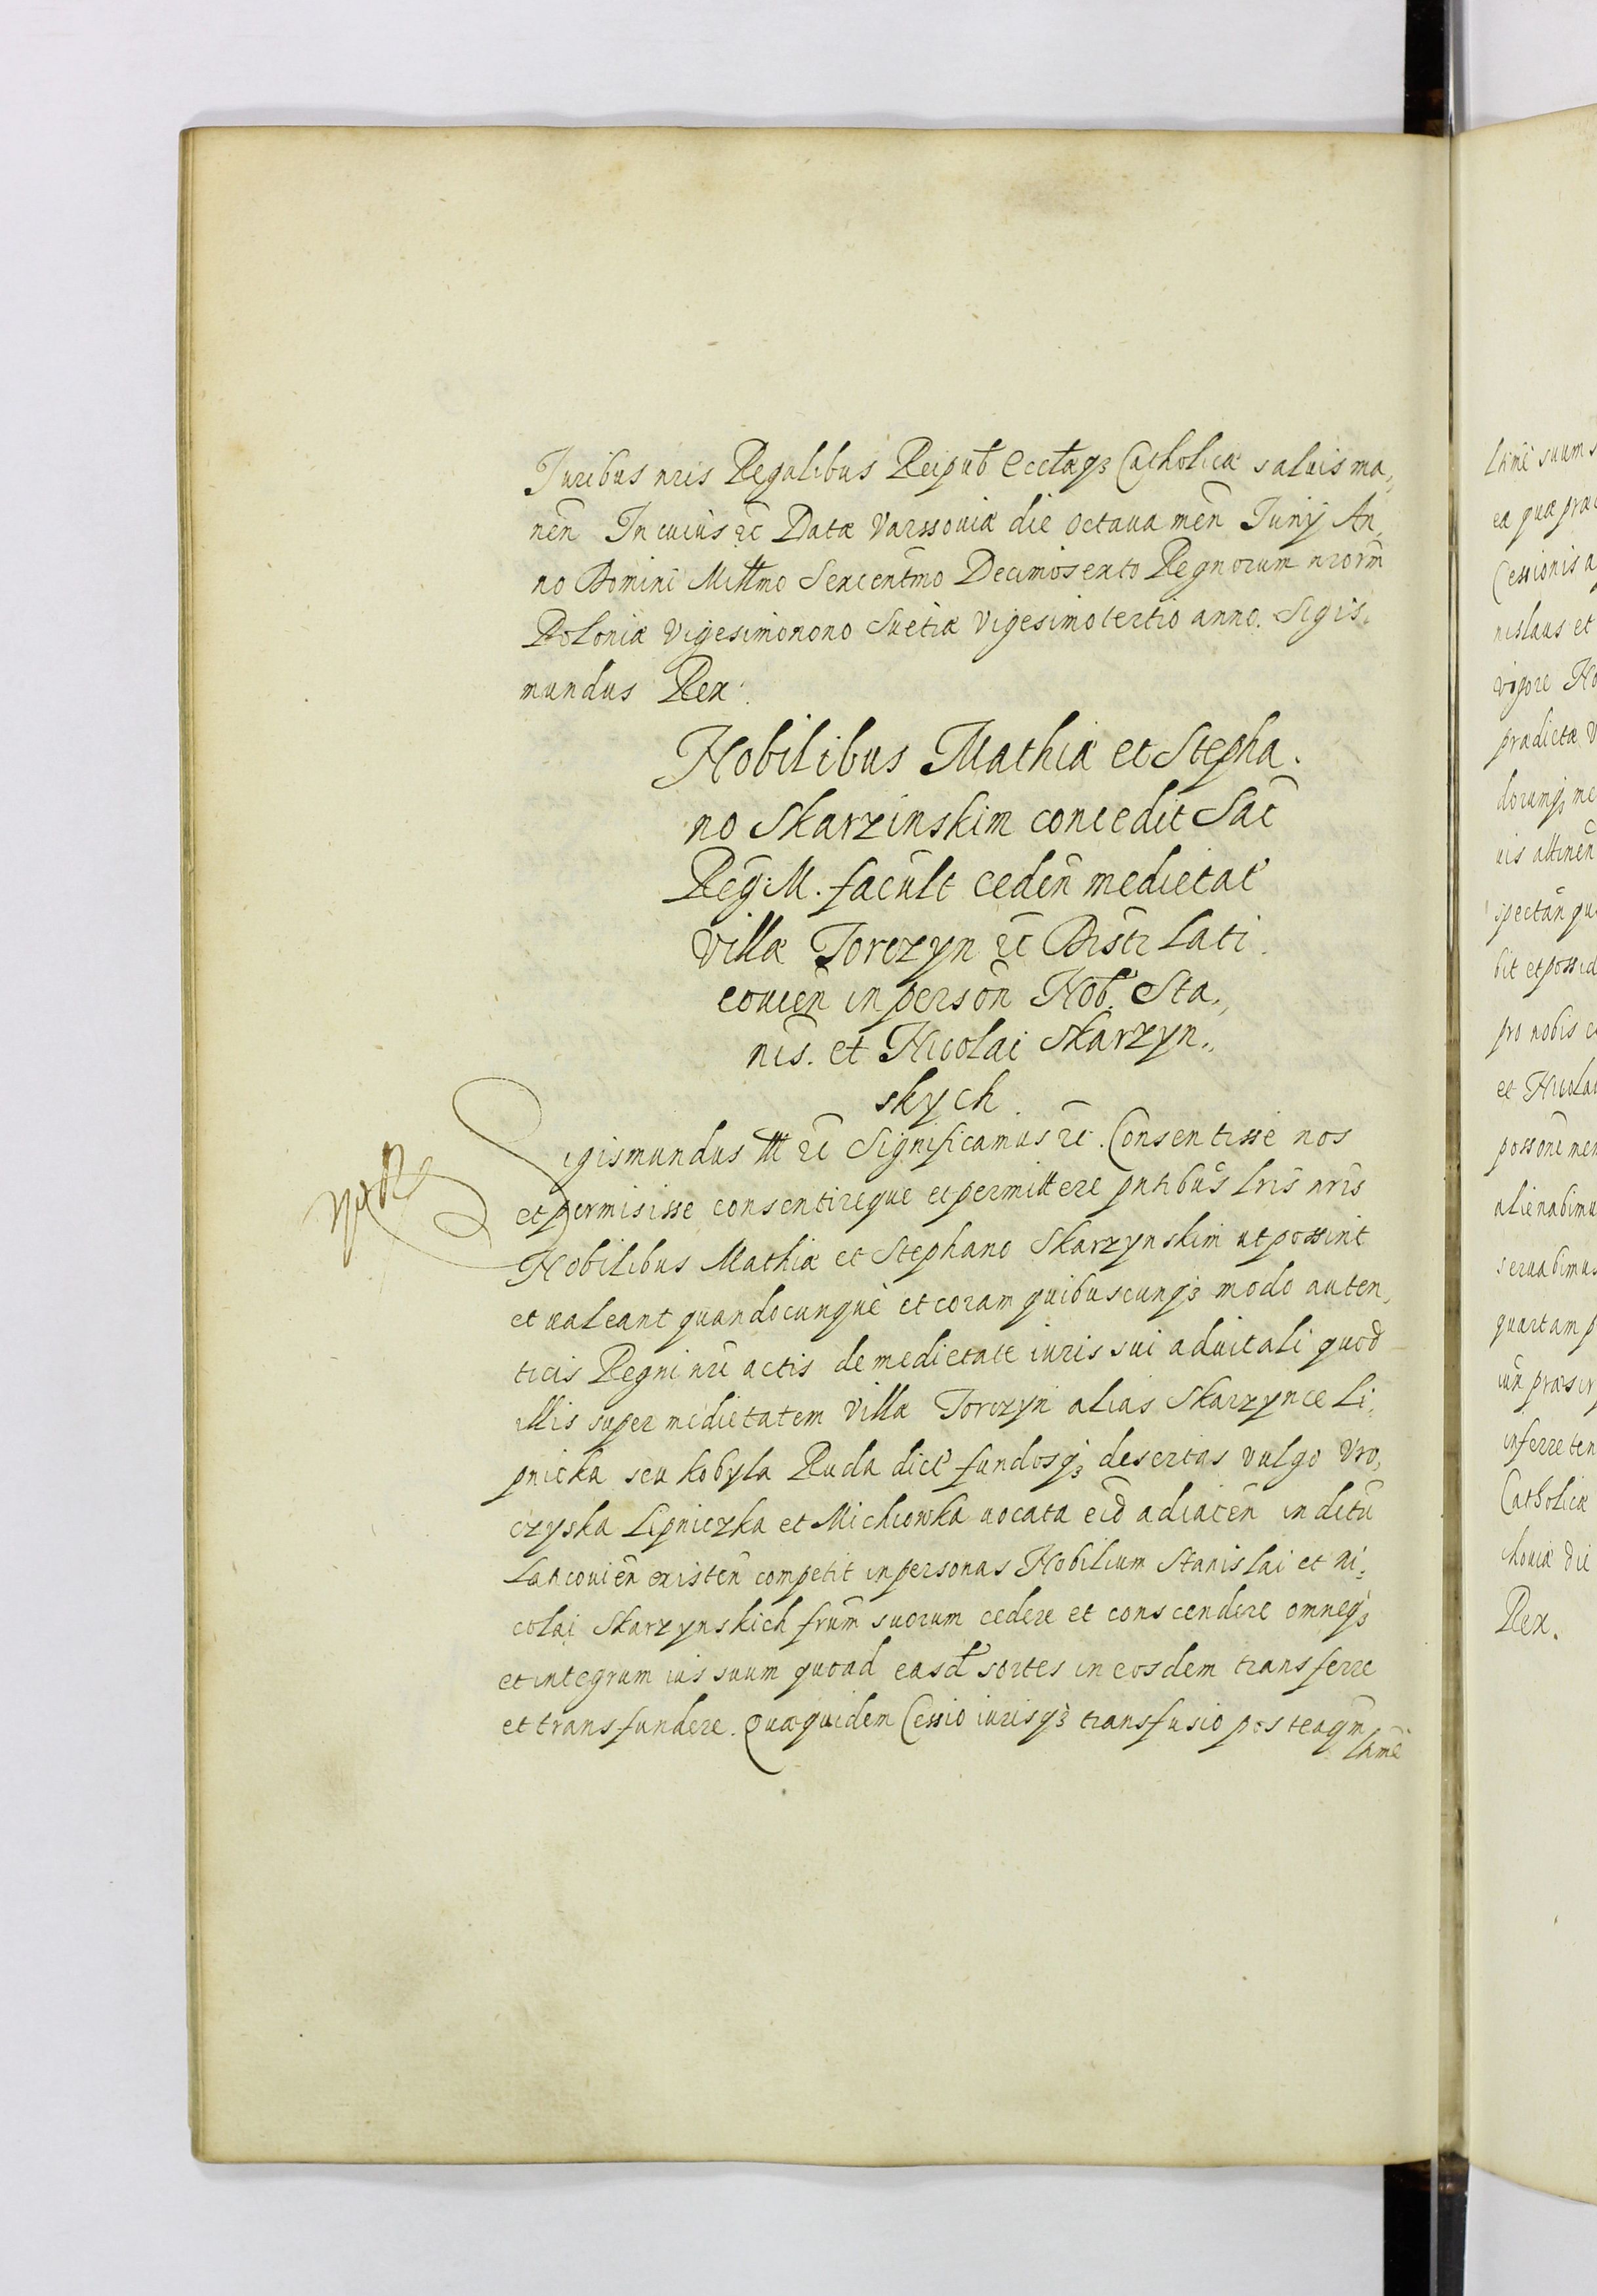 Iuribus nris Regalibus Reipub Ecclaeqȝ Catholicæ saluis ma,
nen̄ In cuius ꝛc Datæ Varssouiæ die Octaua men̄ Iunÿ An,
no Domini Millmo Sexcentm̄o Decimosexto Regnorum nrorm̄
Poloniæ Vigesimonono Suetiæ Vigesimotertio anno. Sigis,
mundus Rex.
Nobilibus Mathiæ et Stepha.
no Skarzinskim concedit Sac̄
Reg̅: M. facult ceden̄ medietat
Villæ Torczyn ꝛc Distr Lati.
couien̄ in person̄ Nob. Sta,,
nis. et Nicolai Skarzyn,,
skych.
Sigismundus III ꝛc Significamus ꝛc. Consentisse nos
et permisisse consentireque et permittere pntibus lris nris
Nobilibus Mathiæ et Stephano Skarzynskim ut possint
et ualeant quandocunque et coram quibuscunqȝ modo auten,
ticis Regni nri actis de medietate iuris sui aduitali quod
illis super medietatem Villæ Torczyn alias Skarzynce Li,
pnicka seu Kobyla Ruda dict fundosqȝ desertas vulgo Vro,
czyska Lipniczka et Michiowka uocata eid̄ adiacen̄ in dctu
Laticouien̄ existen̄ competit in personas Nobilium Stanislai et Ni,
colai Skarzynskich frum̄ suorum cedere et conscendere omneqȝ
et integrum ius suum quoad easd sortes in eosdem transferre
et transfundere. Quæquidem Cessio iurisqȝ transfusio posteaqm̄
Lame suum s
ea quæ præ
Cessionis a
nislaus et
vigore No
prædictæ V
dorumqȝ me
uis attinen̄
spectan̄ qu
bit et possid
pro nobis e
et Nicolai
posson̄e men
alienabimu
seruabimus
quartam p
iun̄ præscr
inferre ten
Catholicæ
chouiæ die
Rex.